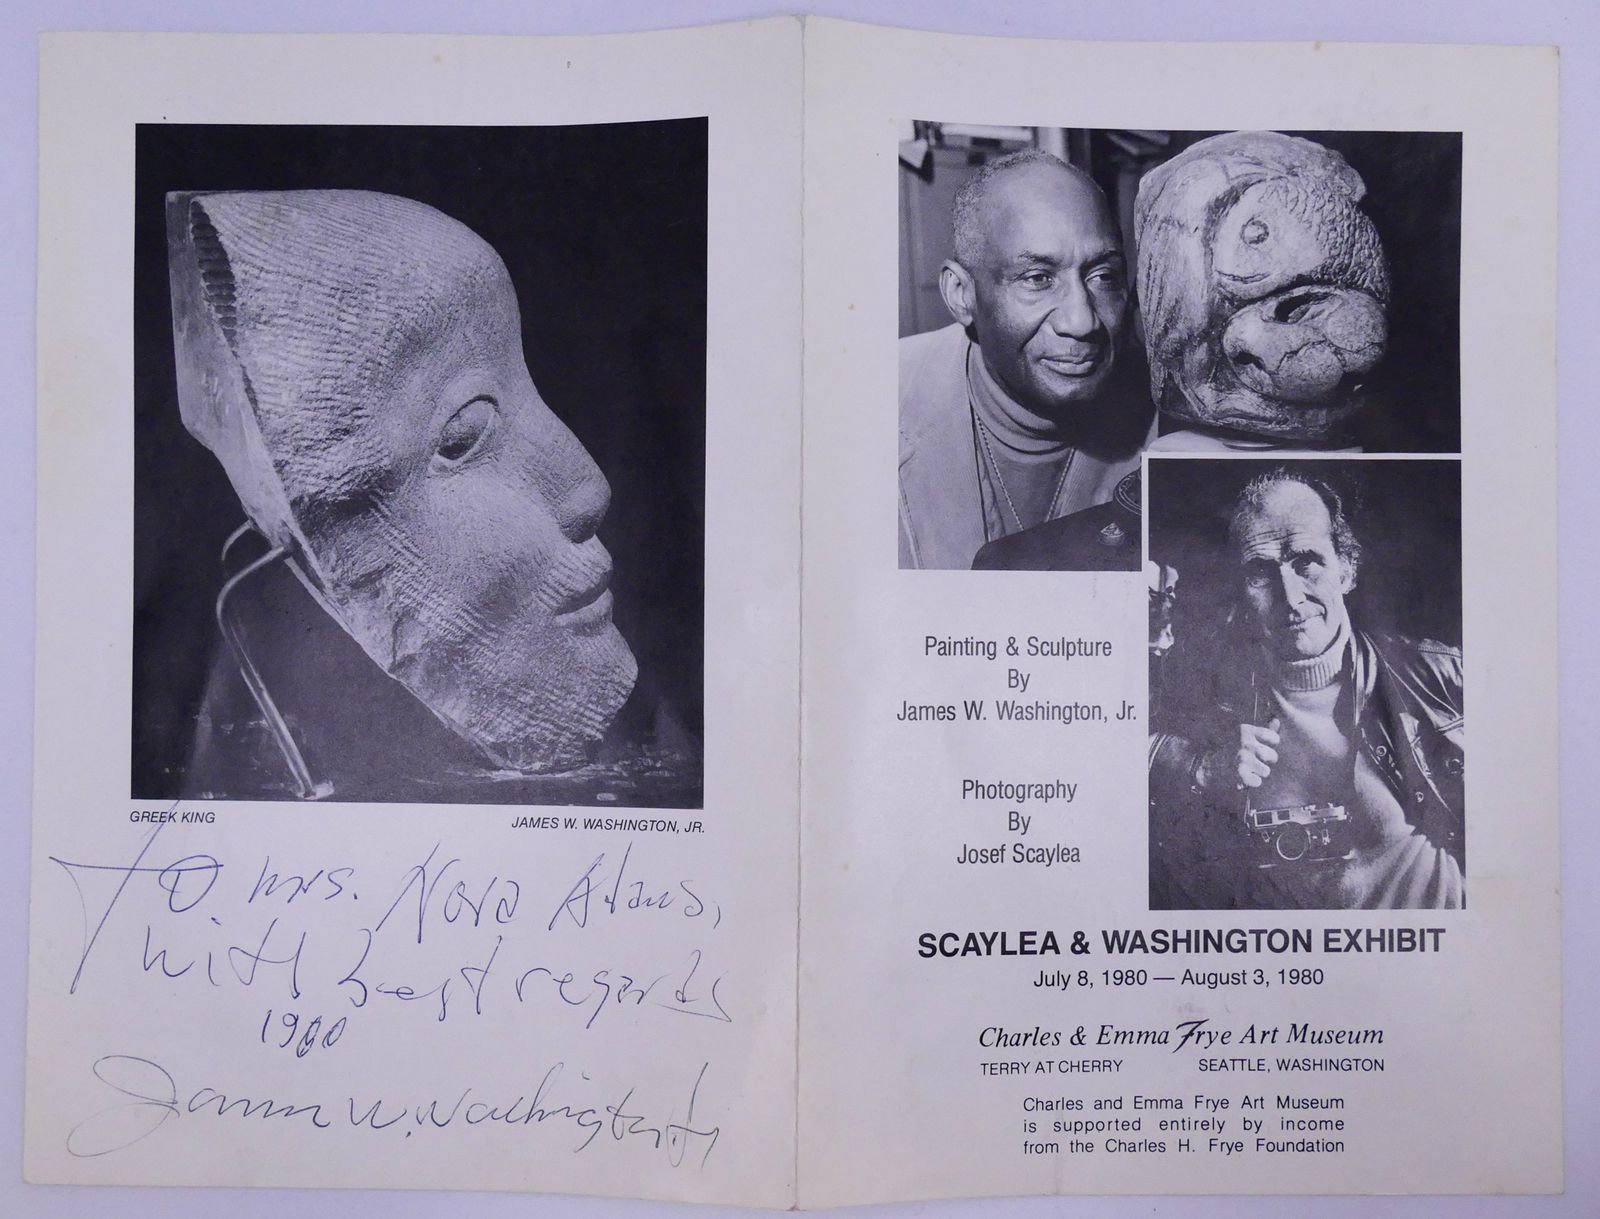 GREEK KING
JAMES W. WASHINGTON, JR.
To Mrs. Nora Adams,
with best regards
1980
James W. Washington Jr
Painting & Sculpture
By
James W. Washington, Jr.
Photography
By
Josef Scaylea
SCAYLEA & WASHINGTON EXHIBIT
July 8, 1980 — August 3, 1980
Charles & Emma Frye Art Museum
TERRY AT CHERRY SEATTLE, WASHINGTON
Charles and Emma Frye Art Museum
is supported entirely by income
from the Charles H. Frye Foundation